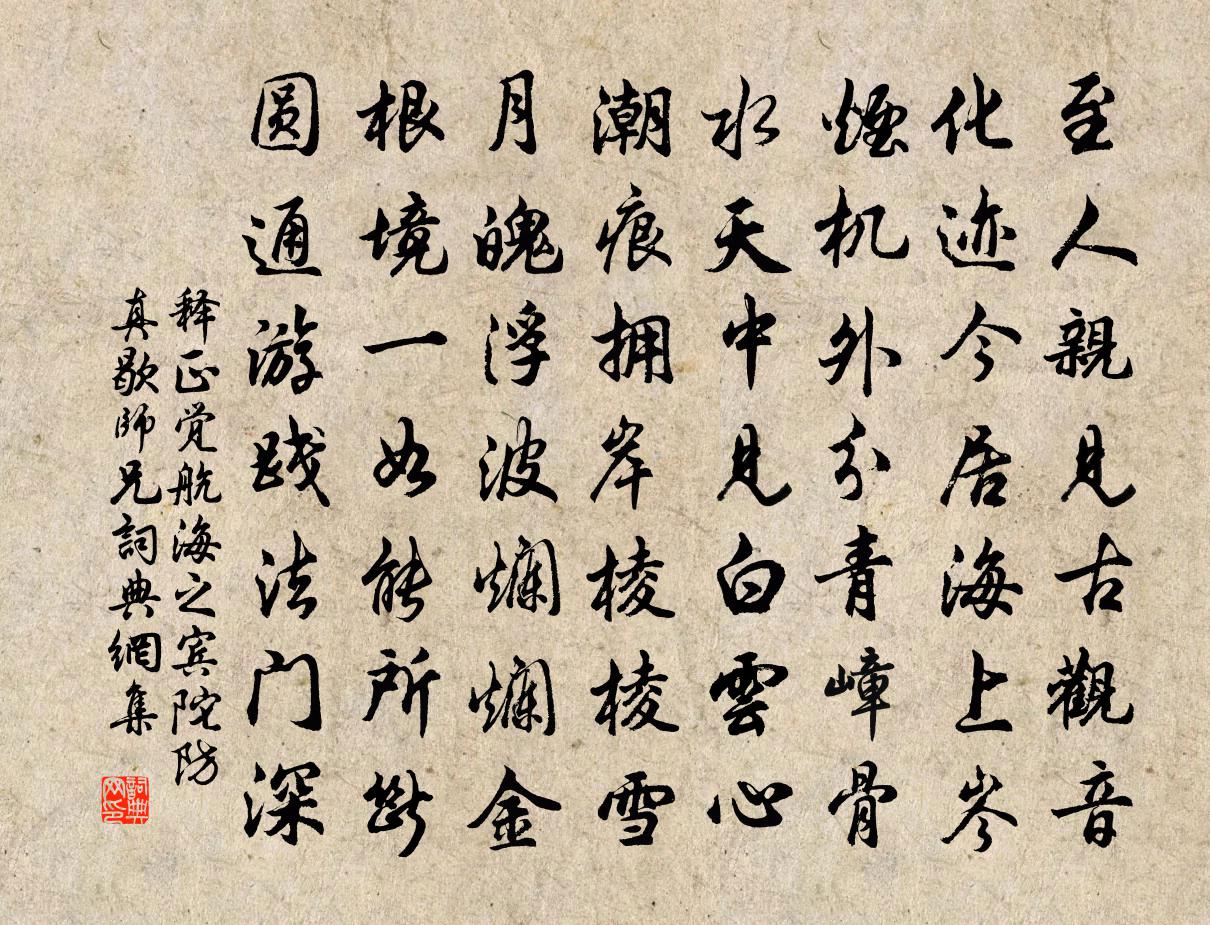 至人親見古觀音
化迹今居海上岑
煙机外分青嶂骨
水天中見白雲心
潮痕拥岸棱棱雪
月魄浮波爛爛金
根境一如能所断
圆通游践法门深
释正觉航海之宾陀防
真歇師兄詞典網集
詞典网印